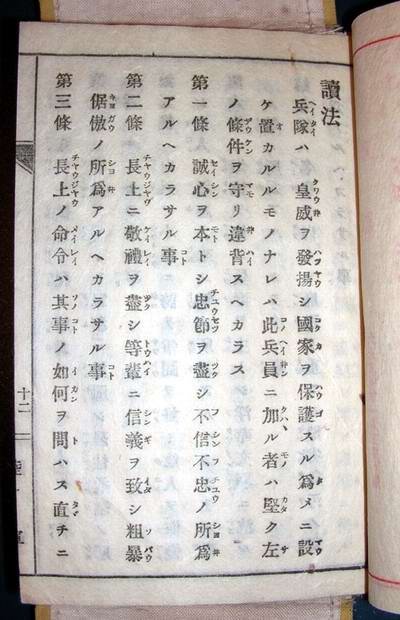 讀法
兵隊ハ 皇威ヲ發揚シ國家ヲ保護スル爲メニ設
ケ置カルルモノナレハ此兵員ニ加ル者ハ堅ク左
ノ條件ヲ守リ違背スヘカラス
第一條 誠心ヲ本トシ忠節ヲ盡シ不信不忠ノ所爲
アルヘカラサル事
第二條 長上ニ敬禮ヲ盡シ等輩ニ信義ヲ致シ粗暴
倨傲ノ所爲アルヘカラサル事
第三條 長上ノ命令ハ其事ノ如何ヲ問ハス直チニ
十二